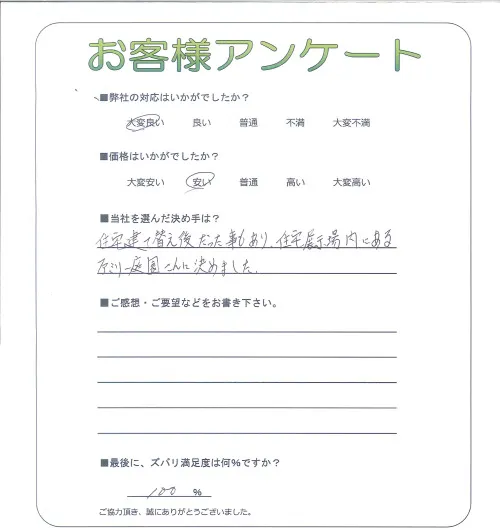 お客様アンケート
■弊社の対応はいかがでしたか？
大変良い 良い 普通 不満 大変不満
■価格はいかがでしたか？
大変安い 安い 普通 高い 大変高い
■当社を選んだ決め手は？
住宅建て替え後だった事もあり、住宅展示場内にある
庭園さんに決めました。
■ご感想・ご要望などをお書き下さい。
■最後に、ズバリ満足度は何％ですか？
100 ％
ご協力頂き、誠にありがとうございました。